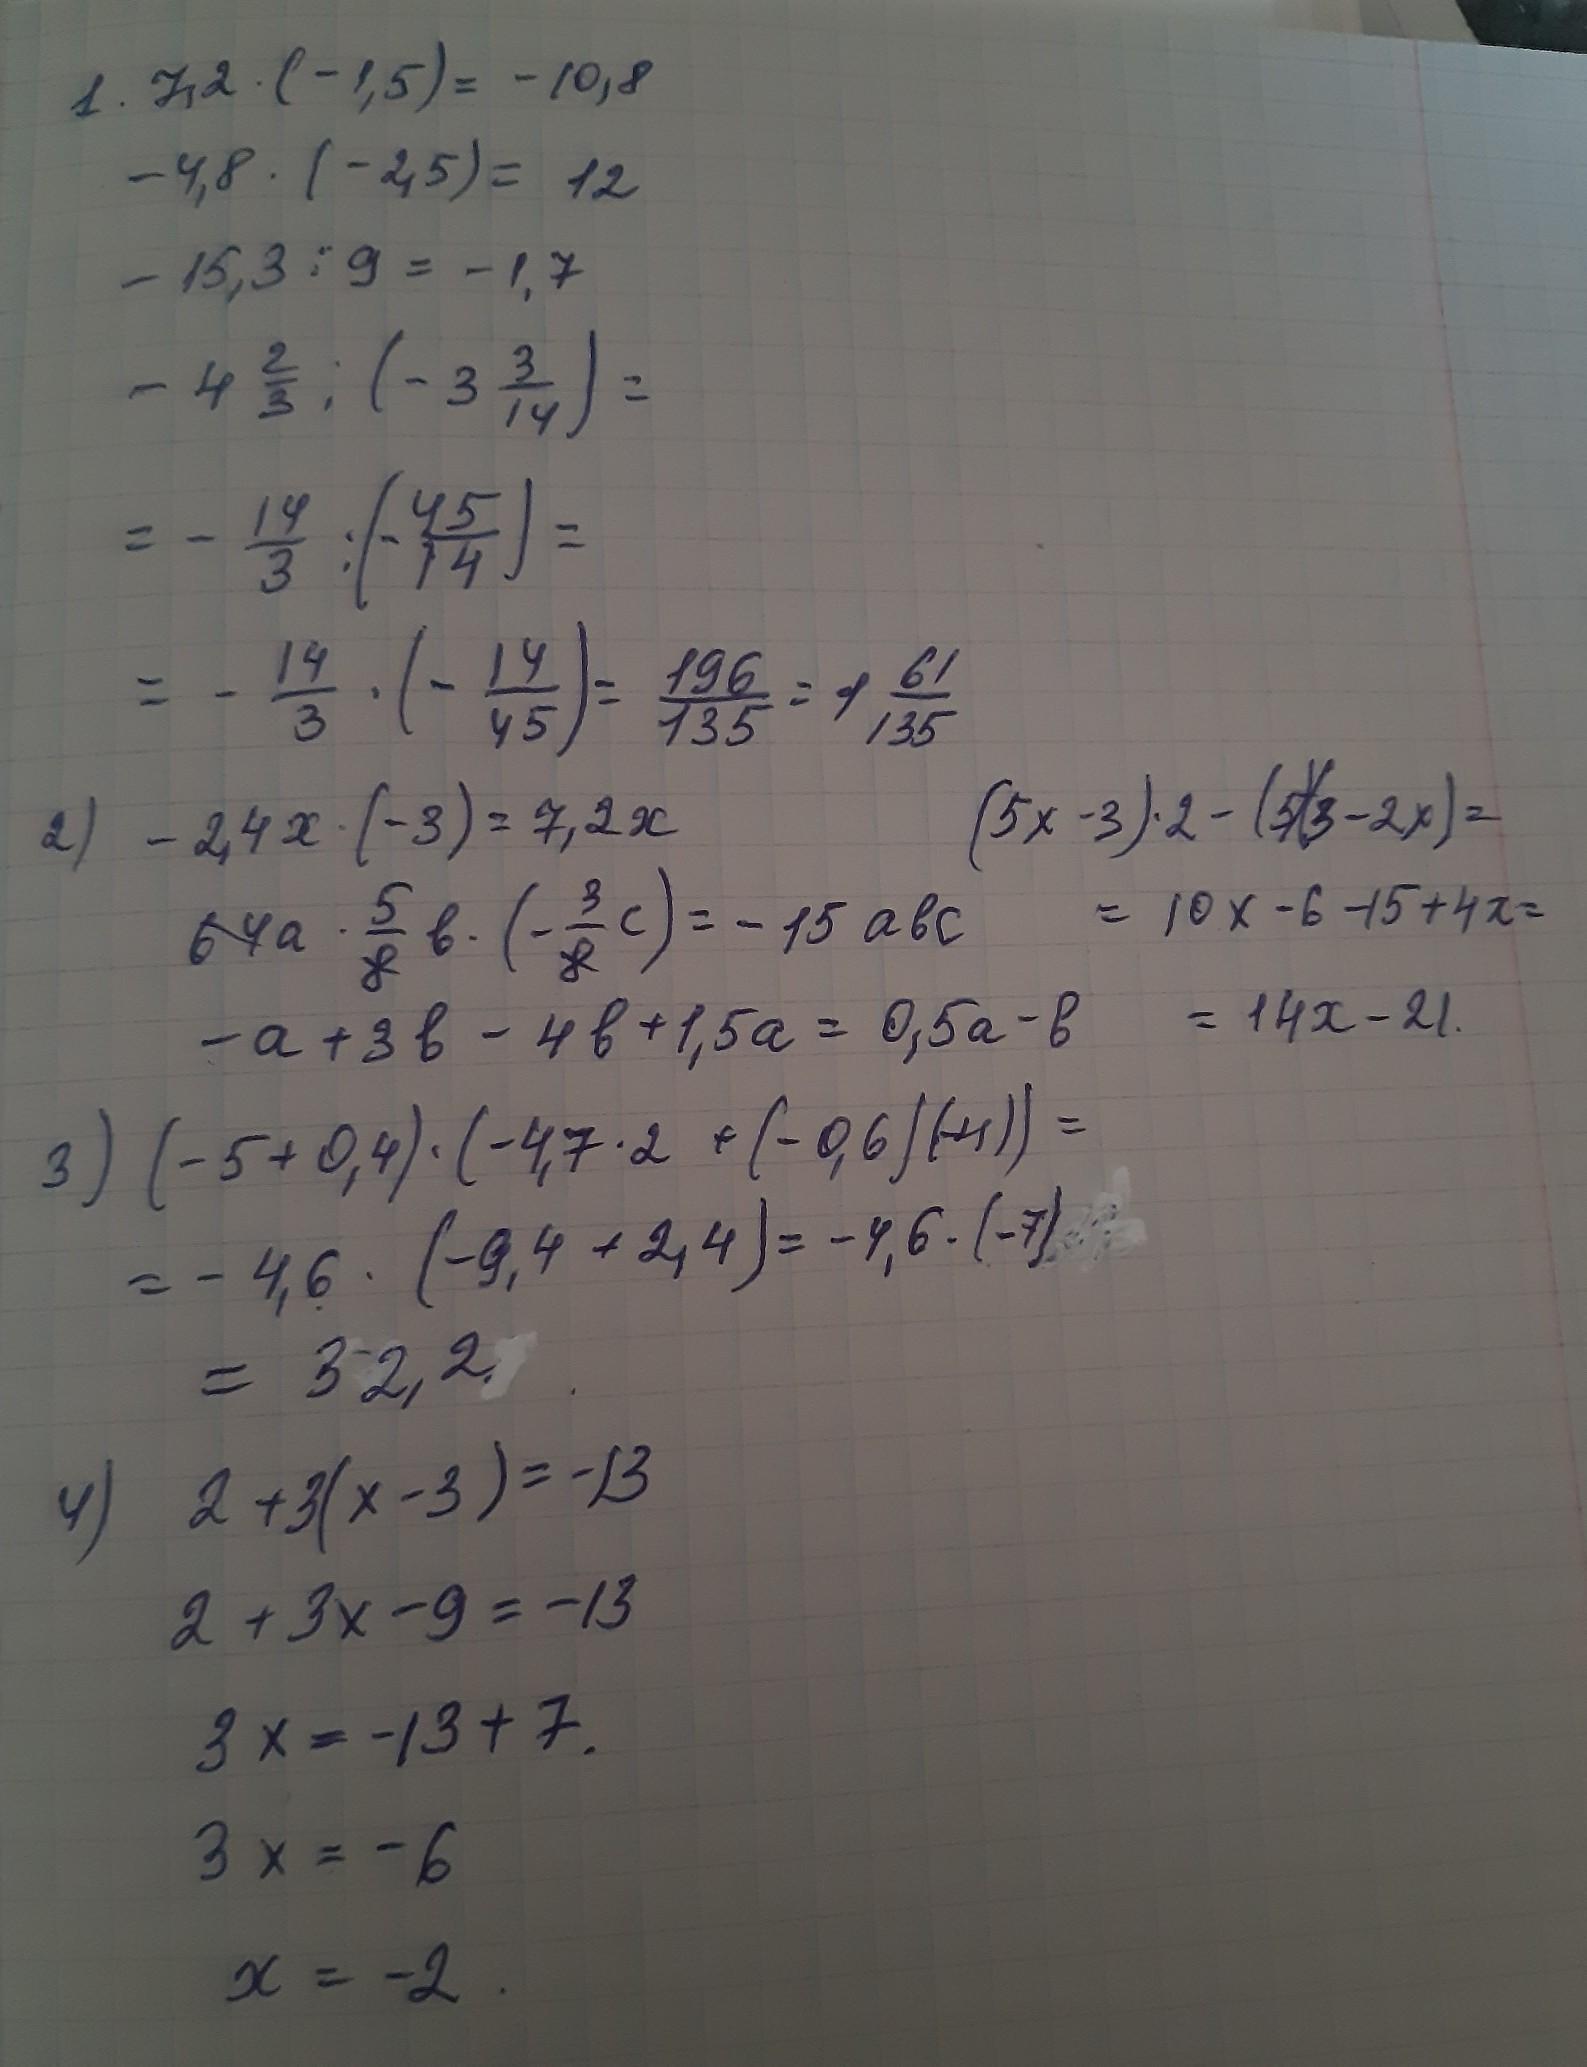 1. 7,2 · (-1,5) = -10,8
-4,8 · (-2,5) = 12
-15,3 : 9 = -1,7
-4 2/3 : (-3 3/14) =
= - 14/3 : (- 45/14) =
= - 14/3 · (- 14/45) = 196/135 = 1 61/135
2) -2,4x · (-3) = 7,2x
64a · 5/8 b · (- 3/8 c) = -15 abc
-a + 3b - 4b + 1,5a = 0,5a - b
(5x - 3) · 2 - (5(3 - 2x) =
= 10x - 6 - 15 + 4x =
= 14x - 21.
3) (-5 + 0,4) · (-4,7 · 2 + (-0,6)(-4)) =
= -4,6 · (-9,4 + 2,4) = -4,6 · (-7)
= 32,2.
4) 2 + 3(x - 3) = -13
2 + 3x - 9 = -13
3x = -13 + 7.
3x = -6
x = -2.